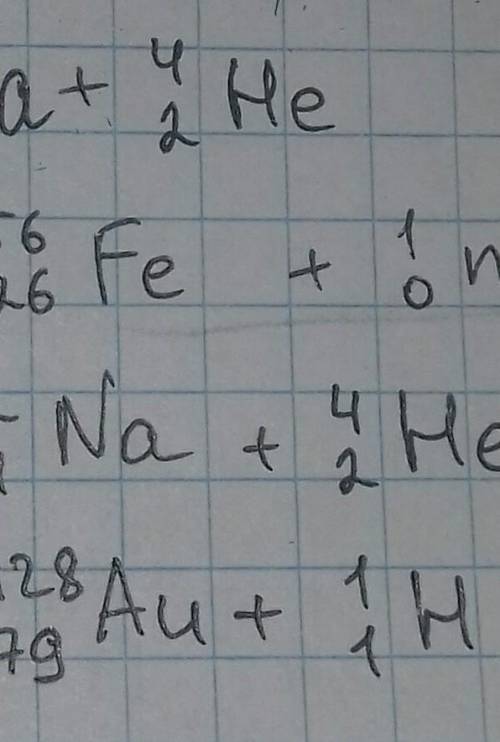 a + ⁴₂He
⁵⁶₂₆Fe + ¹₀n
Na + ⁴₂He
¹²⁸₇₉Au + ¹₁H